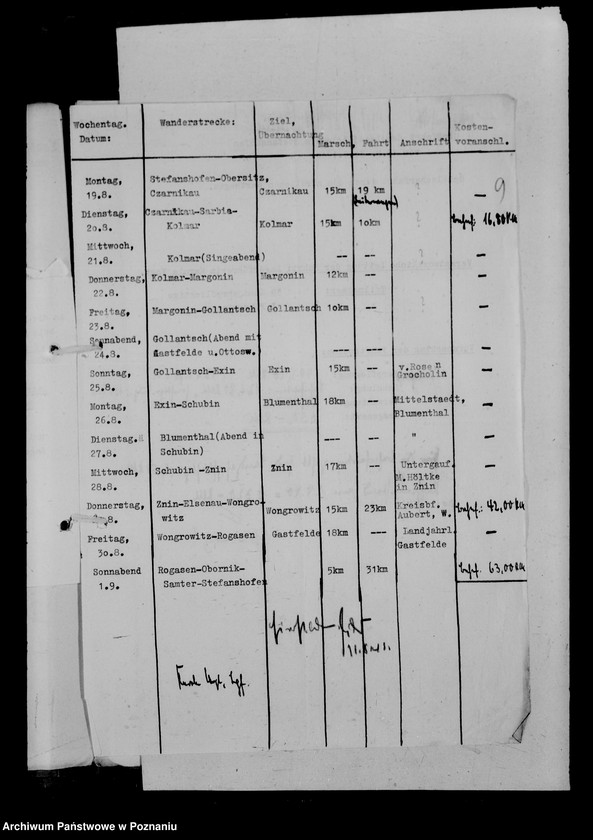 Wochentag. Wanderstrecke: Ziel, Kosten-
Datum: Übernachtung Marsch, Fahrt Anschrift voranschl.
9
Montag, Stefanshofen-Obersitz,
19.8. Czarnikau Czarnikau 15km 19 km ? —
Dienstag, Czarnikau-Sarbia-
2o.8. Kolmar Kolmar 15km 1okm ? 16,80
Mittwoch,
21.8. Kolmar(Singeabend) -- -- ? —
Donnerstag, Kolmar-Margonin Margonin 12km -- ? —
22.8.
Freitag, Margonin-Gollantsch Gollantsch 1okm -- ? —
23.8.
Sonnabend, Gollantsch(Abend mit
24.8. Gastfelde u.Ottosw. --- --- —
Sonntag, Gollantsch-Exin Exin 15km -- v.Rosen —
25.8. Grocholin
Montag, Exin-Schubin Blumenthal 18km -- Mittelstaedt, —
26.8. Blumenthal
Dienstag. Blumenthal(Abend in --- -- " —
27.8. Schubin)
Mittwoch, Schubin -Znin Znin 17km -- Untergauf. —
28.8. M.Höltke
in Znin
Donnerstag, Znin-Elsenau-Wongro- Kreisbf. 42,00
8. witz Wongrowitz 15km 23km Aubert, W.
Freitag, Wongrowitz-Rogasen Gastfelde 18km --- Landjahrl. —
3o.8. Gastfelde
Sonnabend Rogasen-Obornik- 5km 31km 63,00
1.9. Samter-Stefanshofen
Archiwum Państwowe w Poznaniu